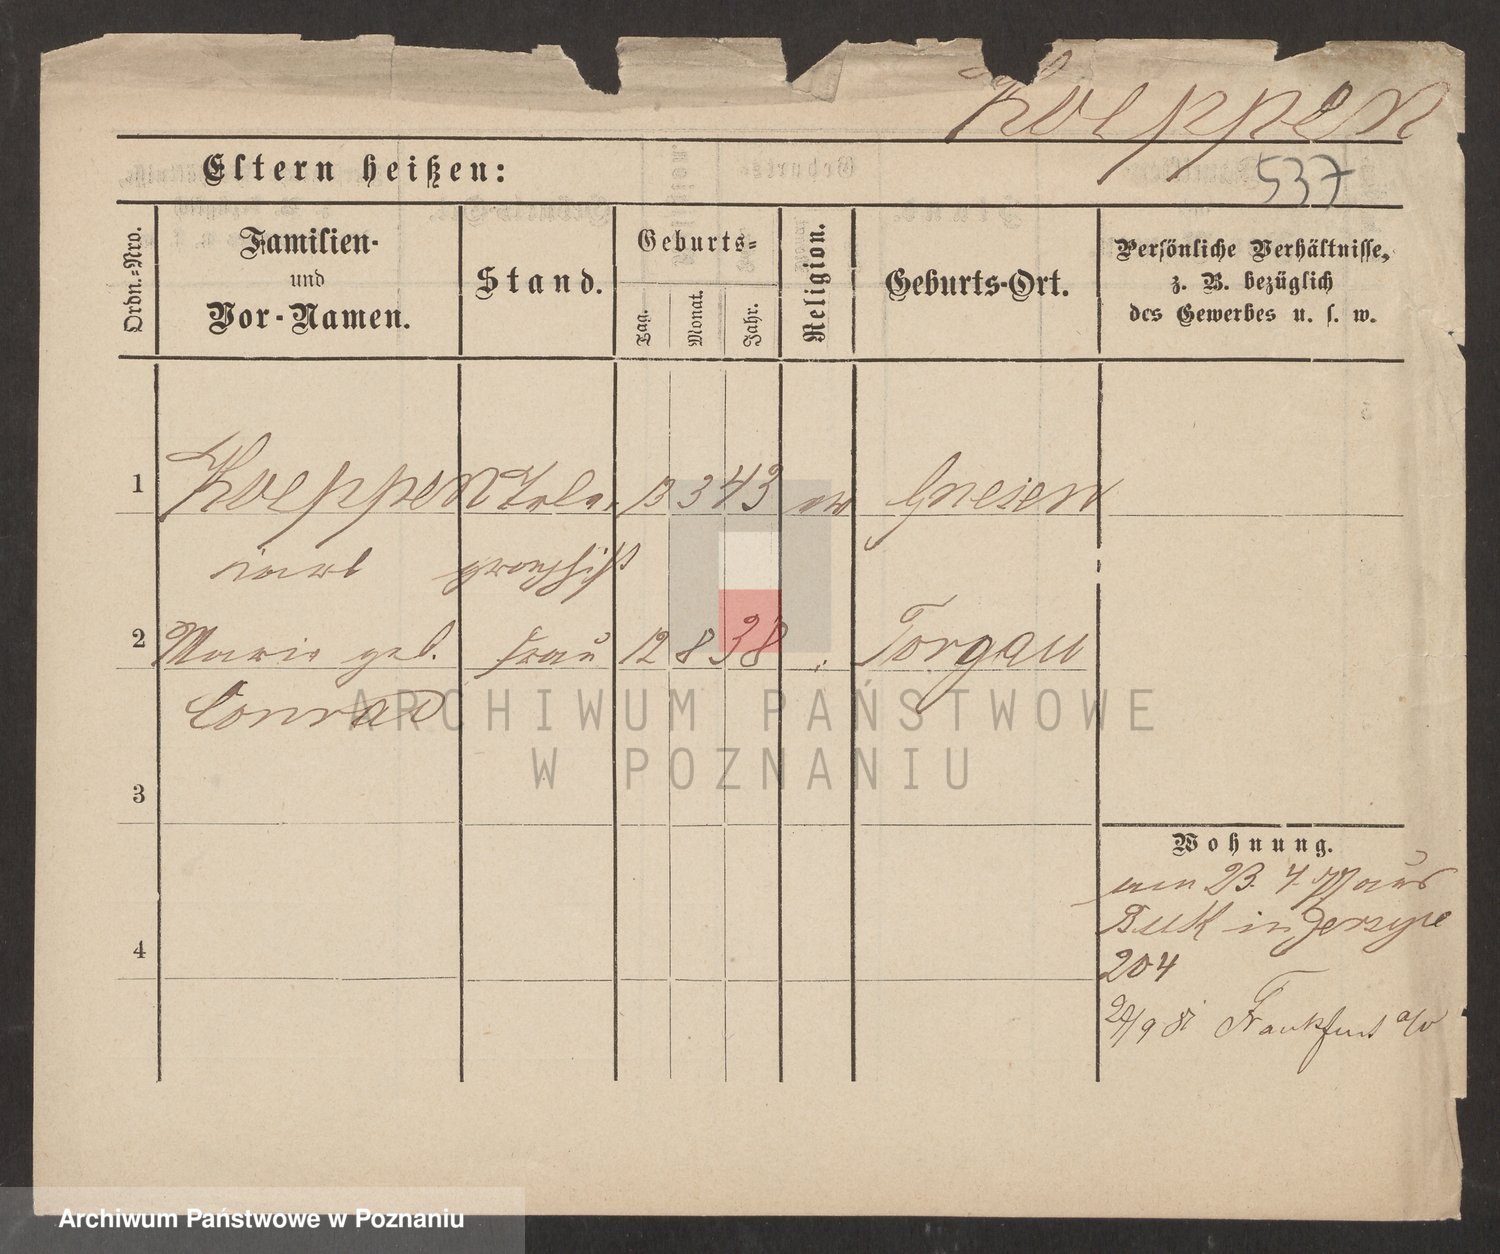 Koeppen
537
Eltern heißen:
Ordn.-Nro.
Familien-
und
Vor-Namen.
Stand.
Geburts-
Tag.
Monat.
Jahr.
Religion.
Geburts-Ort.
Persönliche Verhältnisse,
z. B. bezüglich
des Gewerbes u. s. w.
1 Koeppen Tele- 13 3 43 ev Gnesen
Carl graphist
2 Marie geb. Frau 12 8 38 Torgau
Conrad
ARCHIWUM PAŃSTWOWE
W POZNANIU
3
Wohnung.
am 23. 4. aus
Buk in Jerzyce
4
204
/9 81 Frankfurt a/O
Archiwum Państwowe w Poznaniu